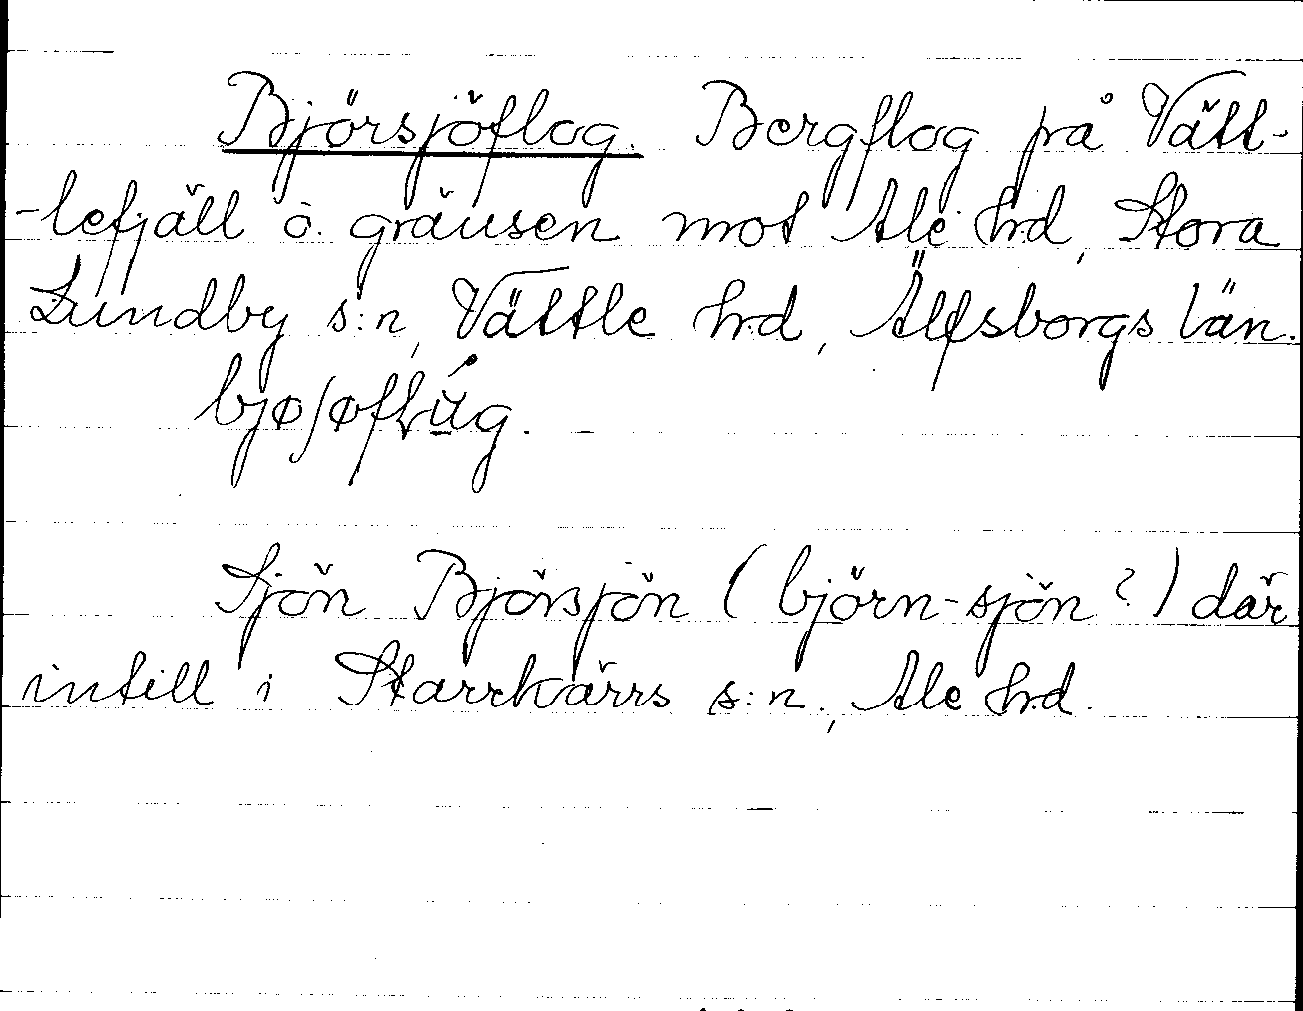 Björsjöflog. Bergflog på Vätt-
-lefjäll å gränsen mot Ale hrd, Stora
Lundby s:n, Vättle hrd, Älfsborgs län.
Sjön Björsjön (björn-sjön?) där
intill i Starrkärrs s:n, Ale hrd.